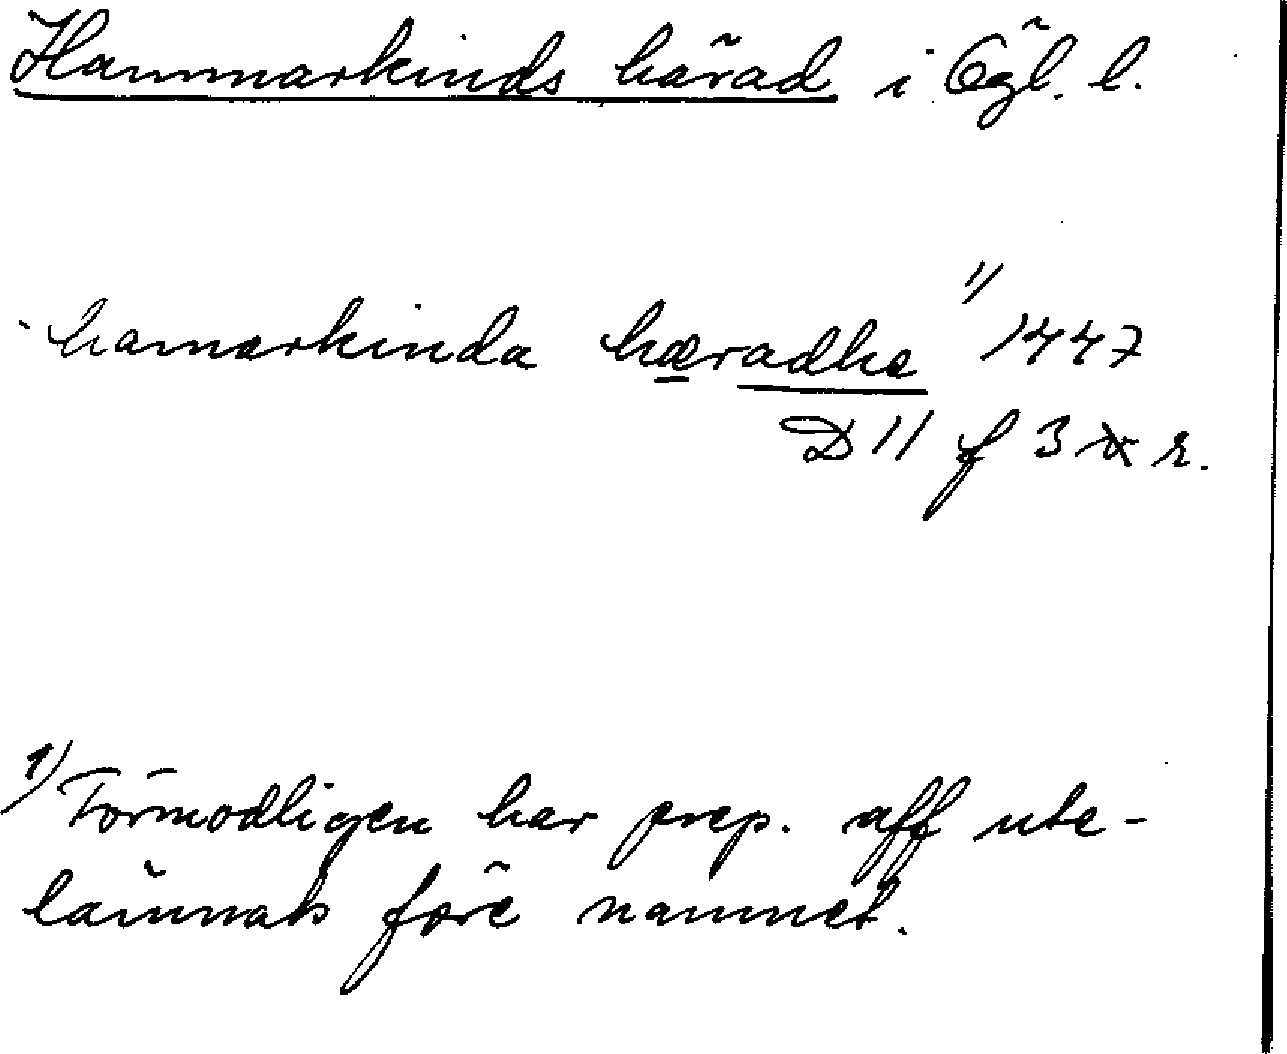 Hammarkinds härad i Ögl. l.
hamarkinda hæradhe 1) 1447
D 11 f 3 r.
1) Förmodligen har prep. aff ute-
lämnats före namnet.